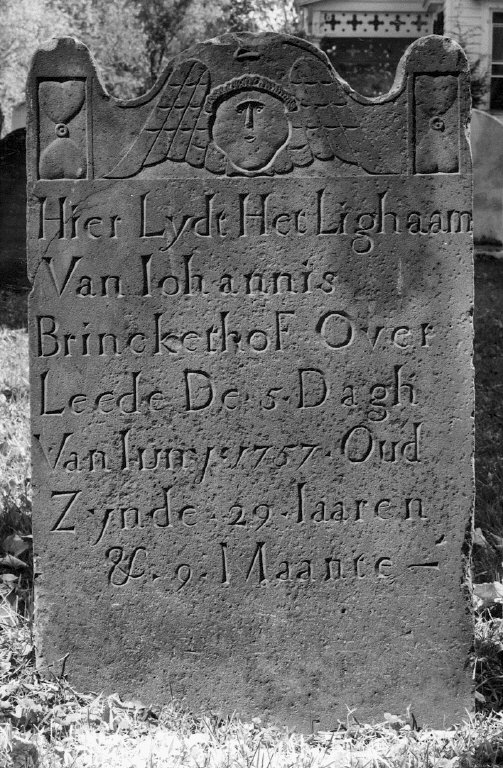 Hier Lydt Het Lighaam
Van Iohannis
Brinckerhof Over
Leede De 5 Dagh
Van Iuny 1757 Oud
Zynde 29 Iaaren
& 9 Maante